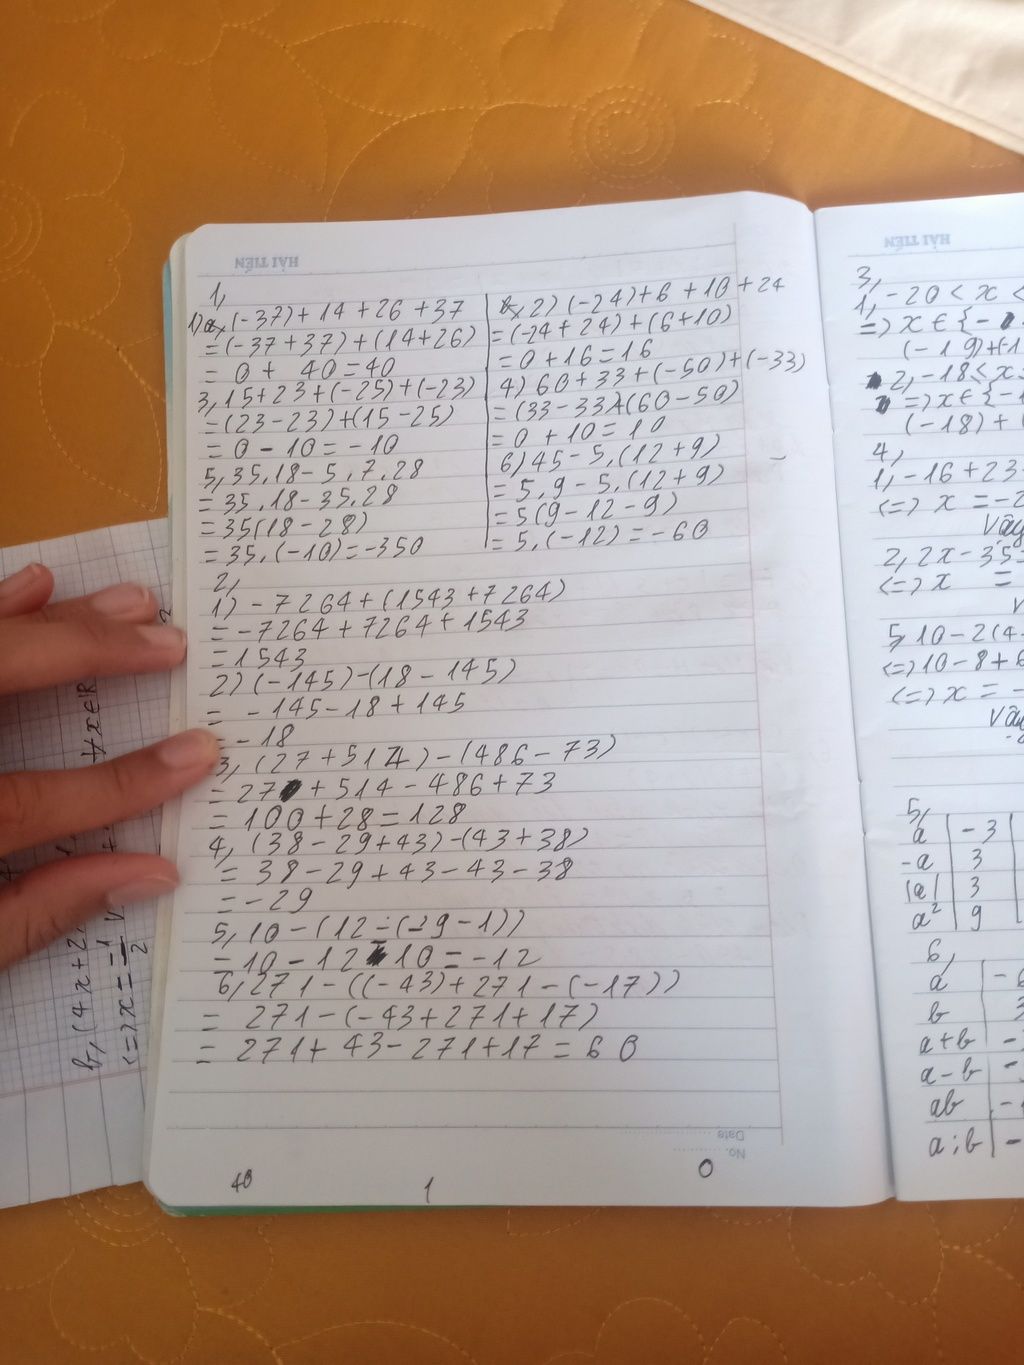 HẢI TIẾN
1,
1) a, (-37)+14+26+37
=(-37+37)+(14+26)
= 0 + 40=40
3, 15+23+(-25)+(-23)
=(23-23)+(15-25)
= 0 - 10 = -10
5, 35.18-5.7.28
= 35.18-35.28
= 35(18-28)
= 35.(-10)=-350
2) (-24)+6+10+24
=(-24+24)+(6+10)
= 0+16=16
4) 60+33+(-50)+(-33)
=(33-33)+(60-50)
= 0+10=10
6) 45-5.(12+9)
= 5.9-5.(12+9)
= 5(9-12-9)
= 5.(-12)=-60
2,
1) -7264+(1543+7264)
= -7264+7264+1543
= 1543
2) (-145)-(18-145)
= -145-18+145
= -18
3, (27+514)-(486-73)
= 27+514-486+73
= 100+28=128
4, (38-29+43)-(43+38)
= 38-29+43-43-38
= -29
5, 10-(12-(-9-1))
= 10-12 10=-12
6, 271-((-43)+271-(-17))
= 271-(-43+271+17)
= 271+43-271+17=60
No.
Date
40
1
0
HẢI TIẾN
3,
1, -20<x<
=> x∈{-
(-19)+(-1
2, -18<x
=> x∈{-1
(-18)+(
4,
1, -16+23
<=> x = -2
Vậy
2, 2x-35=
<=> x =
5, 10-2(4-
<=> 10-8+6
<=> x = -
Vậy
5,
a | -3
-a | 3
|a| | 3
a² | 9
6,
a
b
a+b
a-b
ab
a:b
b, (4x+2
∀x∈R
<=> x = -1/2